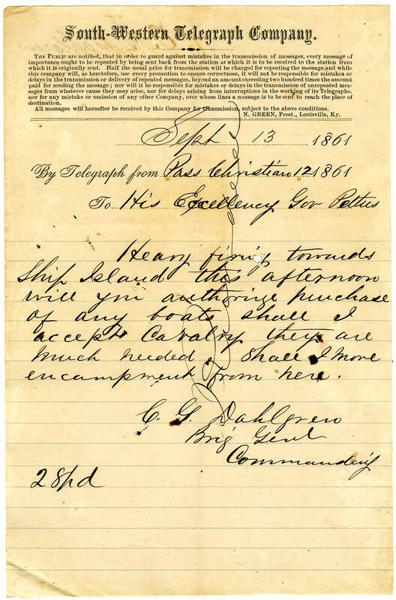 South-Western Telegraph Company.
THE PUBLIC are notified, that in order to guard against mistakes in the transmission of messages, every message of
importance ought to be repeated by being sent back from the station at which it is to be received to the station from
which it is originally sent. Half the usual price for transmission will be charged for repeating the message, and while
this company will, as heretofore, use every precaution to ensure correctness, it will not be responsible for mistakes or
delays in the transmission or delivery of repeated messages, beyond an amount exceeding two hundred times the amount
paid for sending the message; nor will it be responsible for mistakes or delays in the transmission of unrepeated messages
from whatever cause they may arise, nor for delays arising from interruptions in the working of its Telegraphs,
nor for any mistake or omission of any other Company, over whose lines a message is to be sent to reach the place of
destination.
All messages will hereafter be received by this Company for transmission, subject to the above conditions.
N. GREEN, Prest., Louisville, Ky.
Sept 13 1861
By Telegraph from Pass Christian 12 1861
To His Excellency Gov Pettus
Heavy firing towards
Ship Island this afternoon
will you authorize purchase
of any boats shall I
accept Cavalry they are
much needed shall I move
encampment from here.
C. G. Dahlgren
Brig Genl
Commanding
28pd